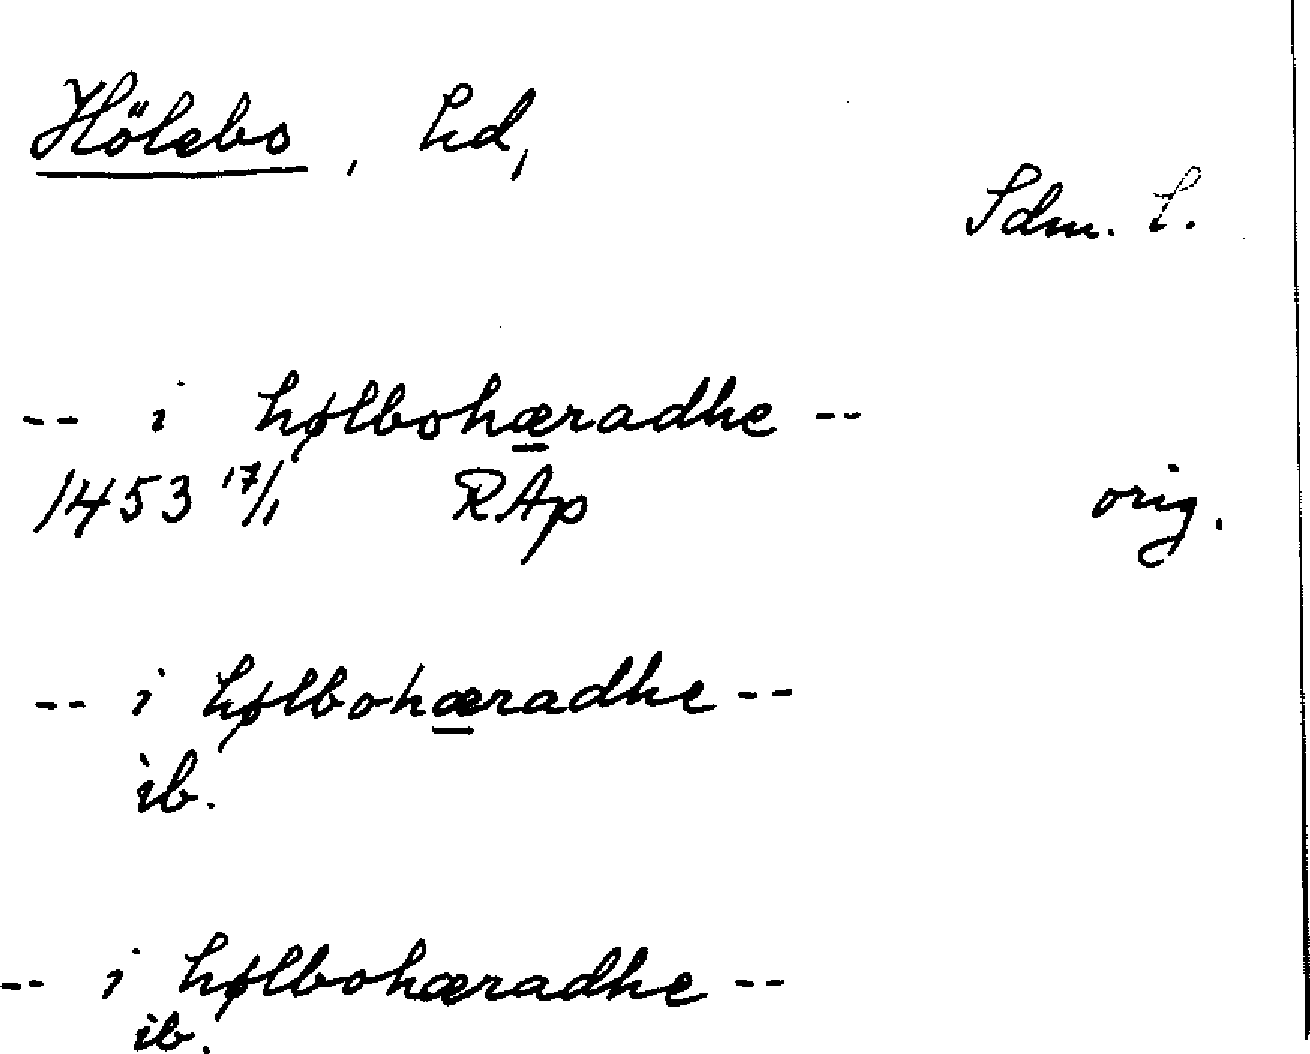 Hölebo, hd,
Sdm. l.
-- i hølbohæradhe --
1453 17/1 RAp orig.
-- i hølbohæradhe --
ib.
-- i hølbohæradhe --
ib.